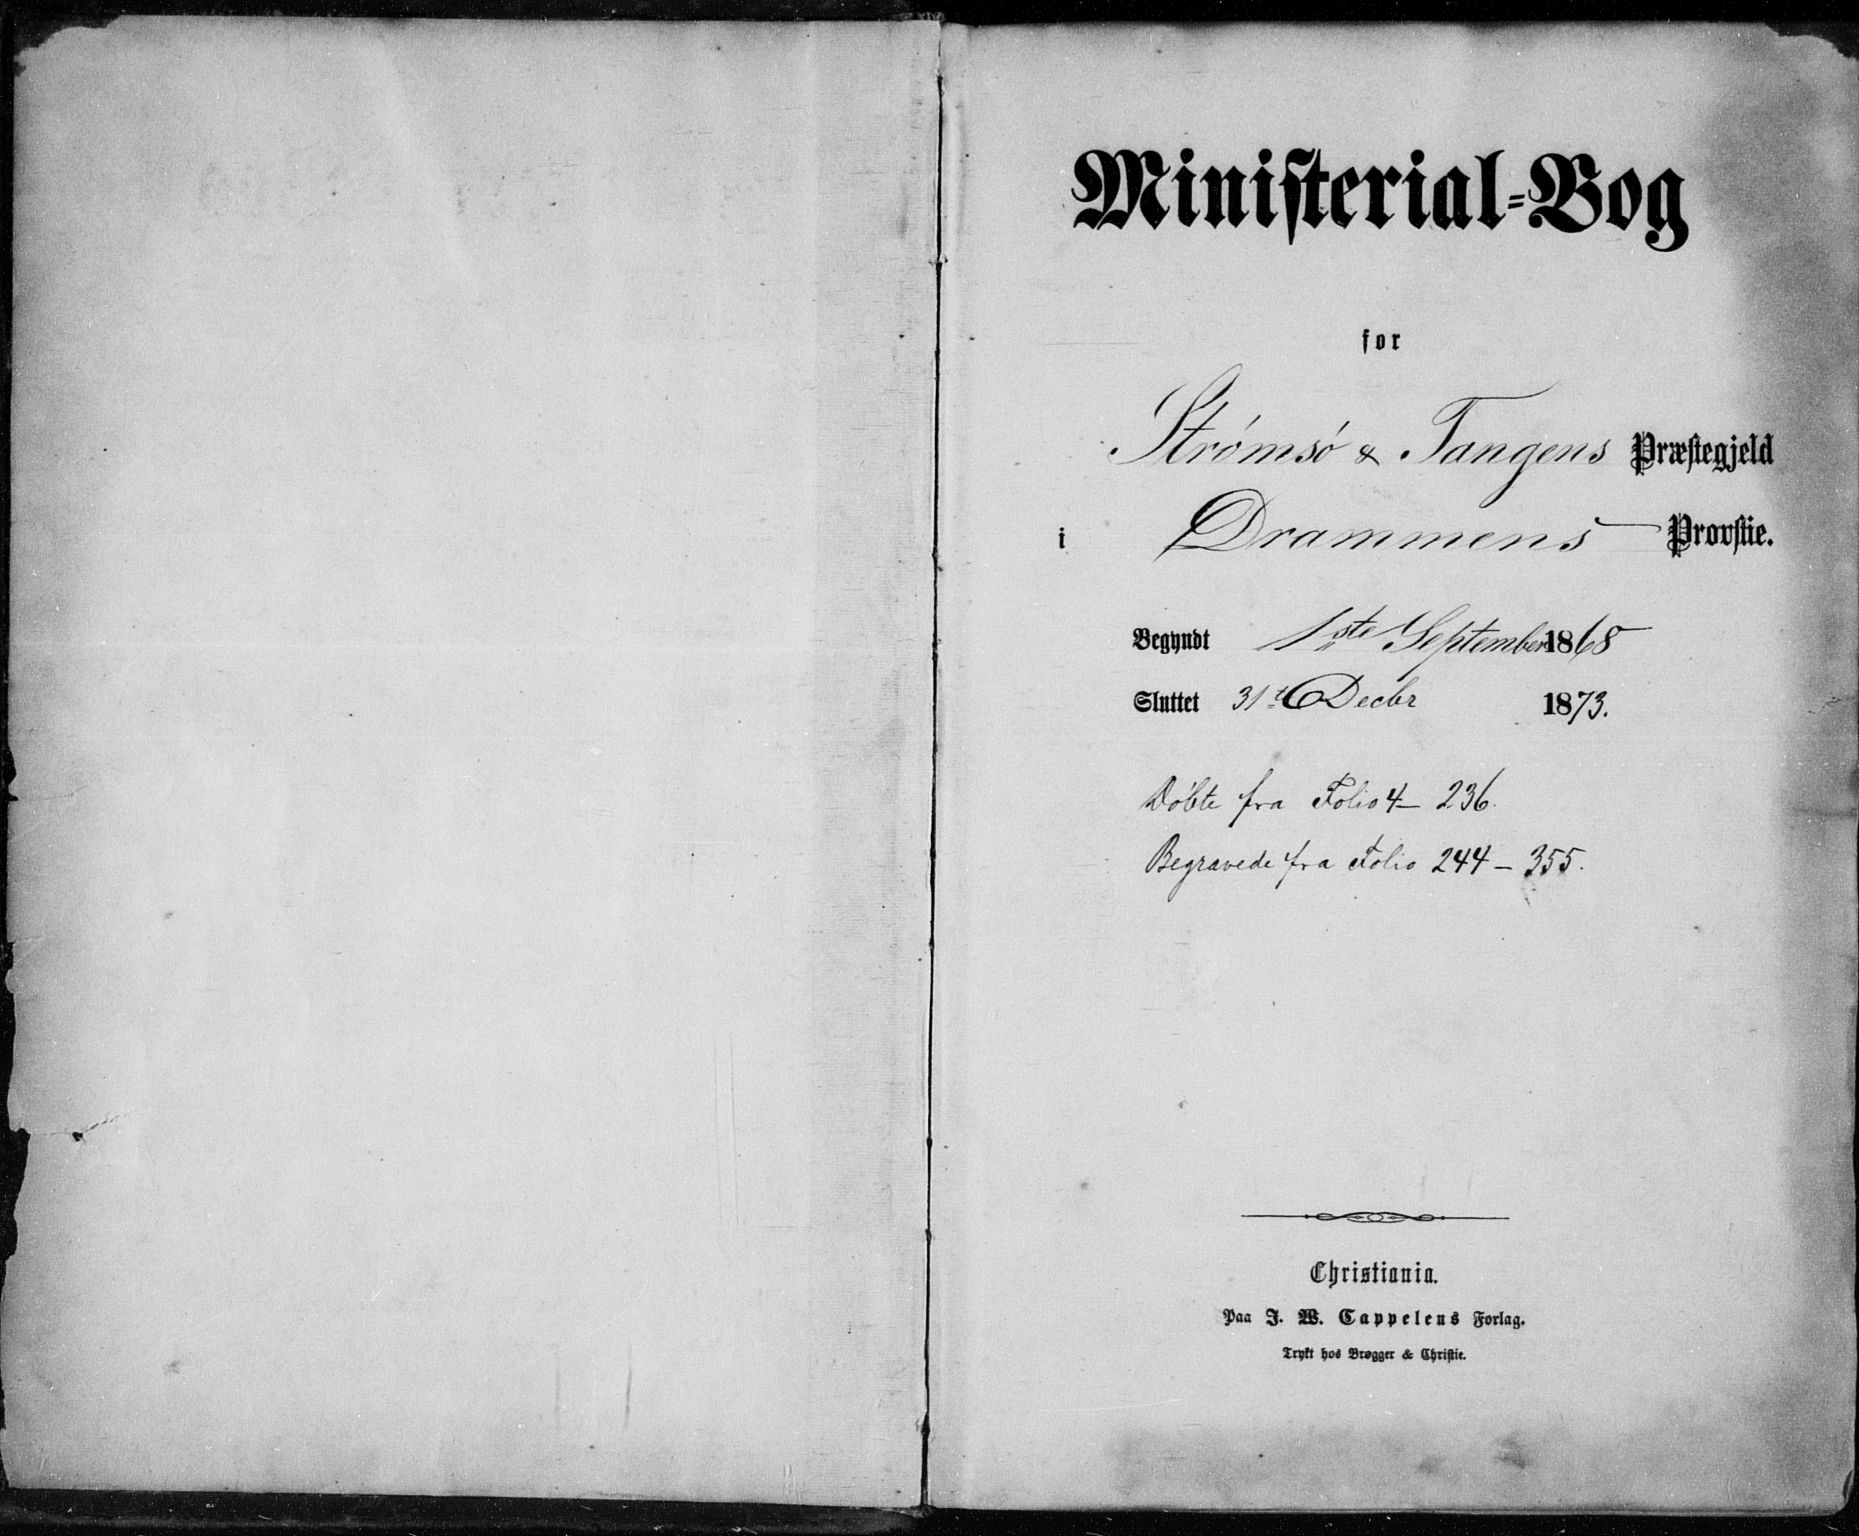 Ministerial-Bog
for
Strømsø & Tangens Præstegjeld
i Drammens Provstie.
Begyndt 1ste September 1868
Sluttet 31te Decbr 1873.
Døbte fra Folio 4 – 236.
Begravede fra Folio 244 – 355.
Christiania.
Paa J. W. Cappelens Forlag.
Trykt hos Brøgger & Christie.